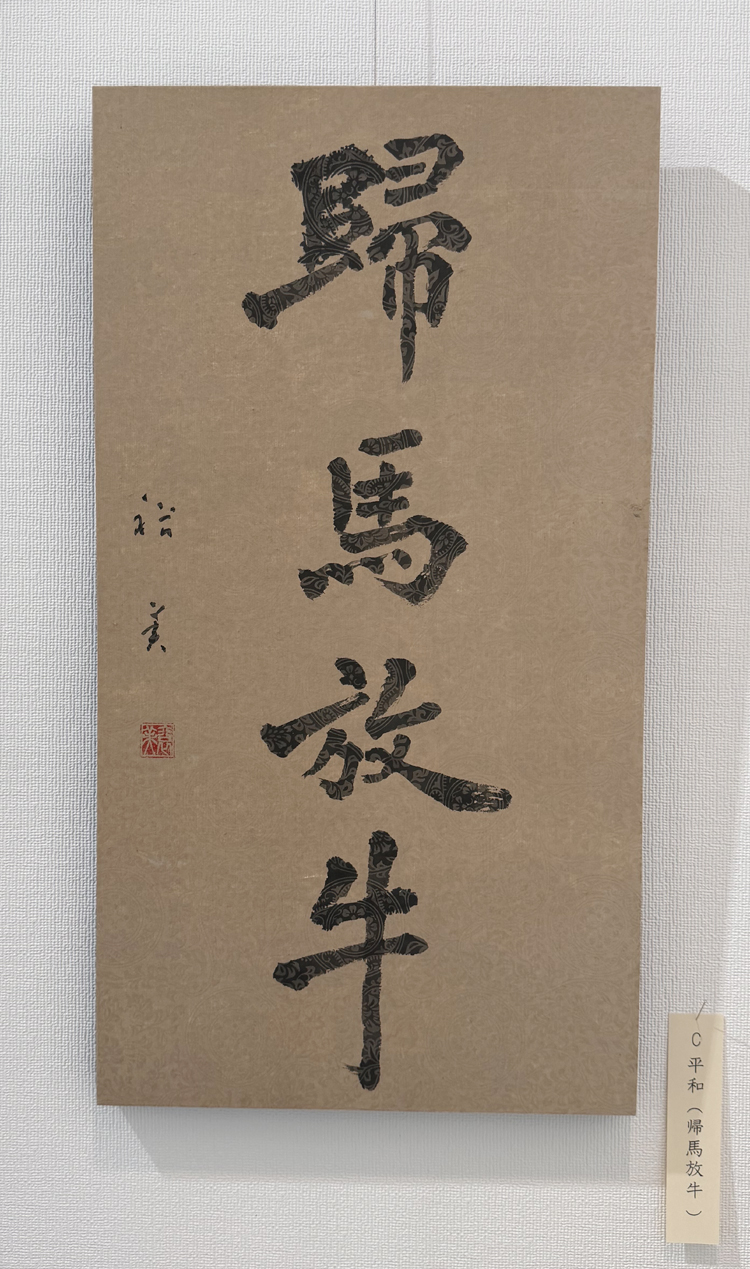 歸馬放牛
裕美
C平和（帰馬放牛）